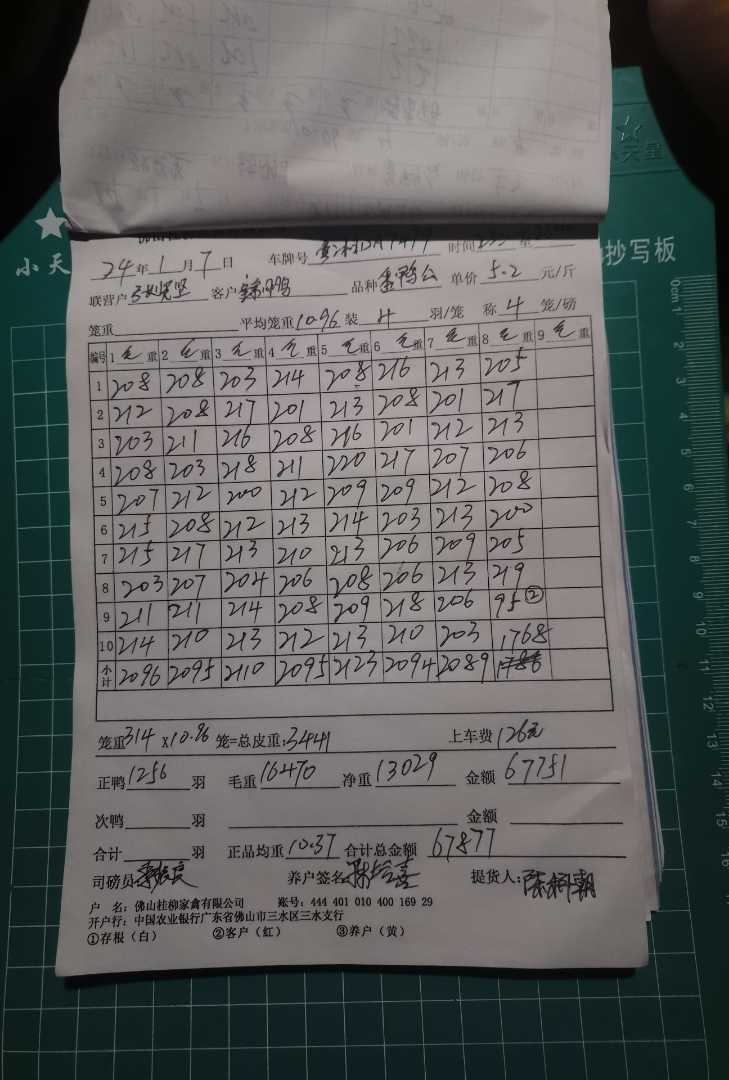 24年1月7日 车牌号 时间
联营户 客户 品种 鸭公 单价 5.2 元/斤
笼重 平均笼重 10.96 装 4 羽/笼 称 4 笼/磅
编号 1 毛重 2 毛重 3 毛重 4 毛重 5 毛重 6 毛重 7 毛重 8 毛重 9 毛重
1 208 208 203 214 208 216 213 205
2 212 208 217 201 213 208 201 217
3 203 211 216 208 216 201 212 213
4 208 203 218 211 220 217 207 206
5 207 212 200 212 209 209 212 208
6 215 208 212 213 214 203 213 200
7 215 217 213 210 213 206 209 205
8 203 207 204 206 208 206 213 219
9 211 211 214 208 209 218 206 95②
10 214 210 213 212 213 210 203 1768
小计 2096 2095 2110 2095 2123 2094 2089
笼重 314 X10.96 笼=总皮重:3441 上车费 126元
正鸭 1256 羽 毛重 16470 净重 13029 金额 67751
次鸭 羽 金额
合计 羽 正品均重 10.37 合计总金额 67877
司磅员 养户签名 提货人:陈柯朝
户 名:佛山桂柳家禽有限公司 账号:444 401 010 400 169 29
开户行:中国农业银行广东省佛山市三水区三水支行
①存根(白) ②客户(红) ③养户(黄)
小天
抄写板
天星
0cm 1 2 3 4 5 6 7 8 9 10 11 12 13 14 15